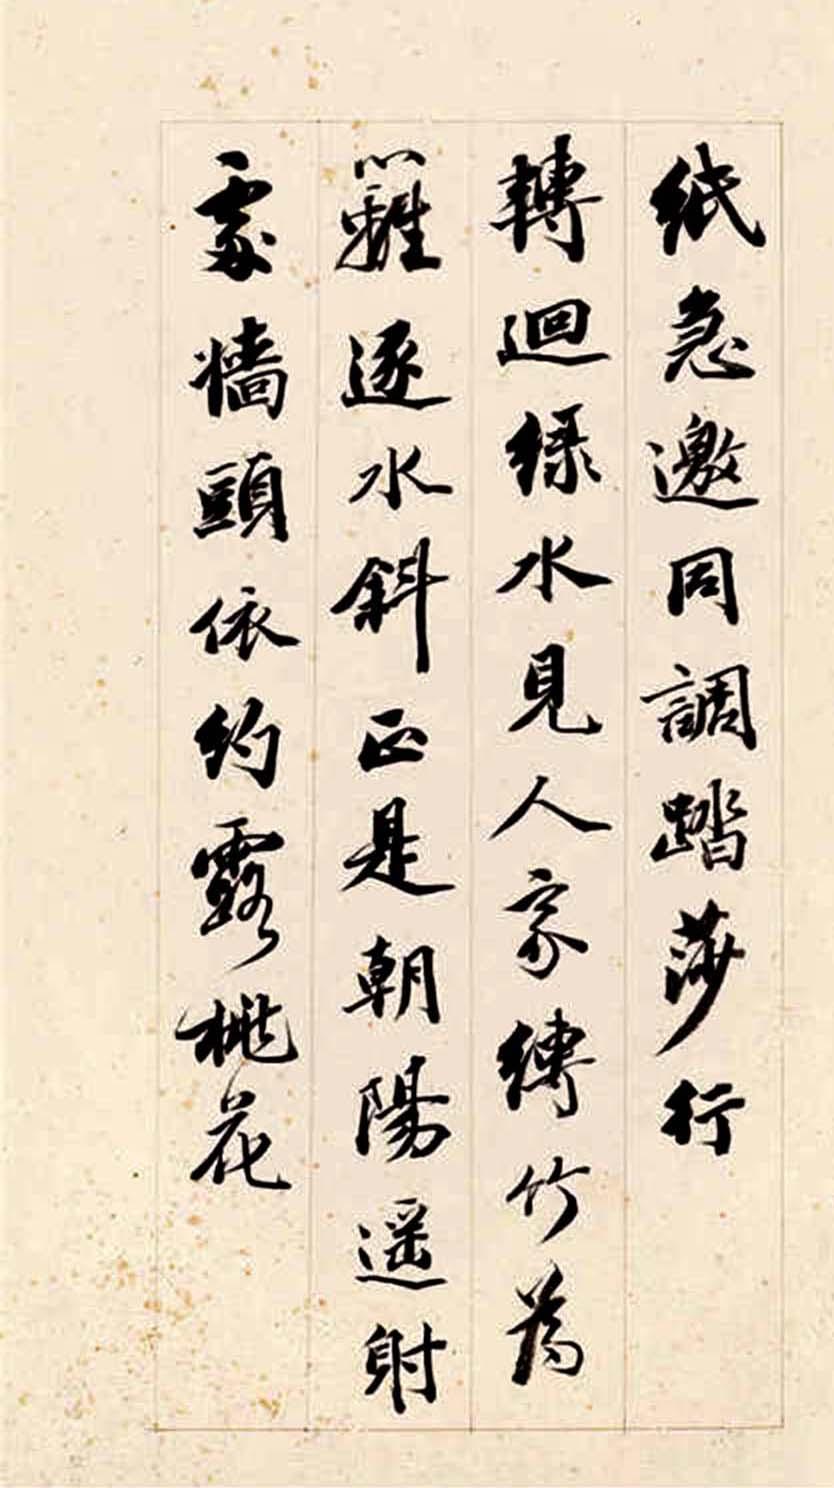 紙急邀同調踏莎行
轉迴綠水見人家縛竹為
籬逐水斜正是朝陽遥射
處墻頭依約露桃花